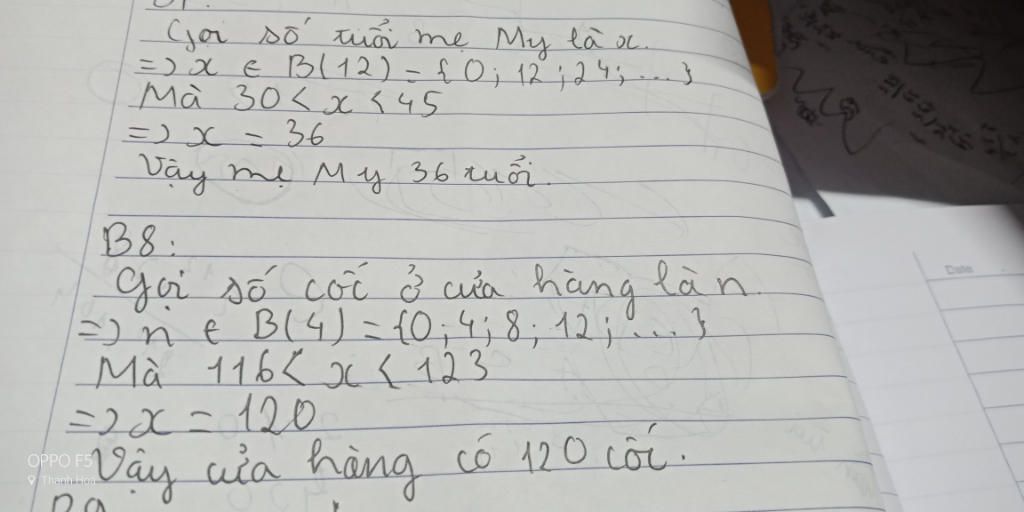 Gọi số tuổi mẹ My là x.
=> x ∈ B(12) = {0; 12; 24; ...}
Mà 30 < x < 45
=> x = 36
Vậy mẹ My 36 tuổi.
B8:
Gọi số cốc ở cửa hàng là n.
=> n ∈ B(4) = {0; 4; 8; 12; ...}
Mà 116 < x < 123
=> x = 120
Vậy cửa hàng có 120 cốc.
OPPO F5
Thanh Hoá
Date